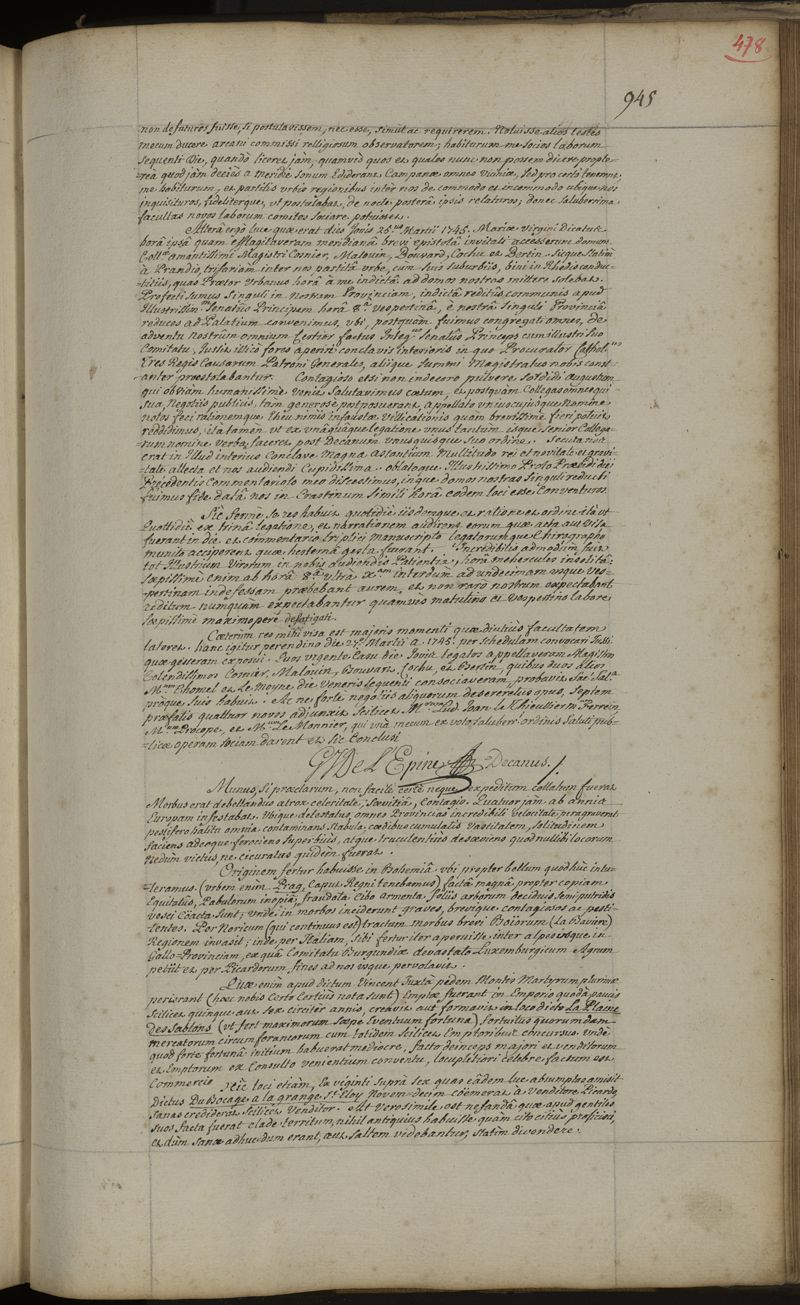 478
945
non defuturos fuisse, si postulavissem, nec esse, simul ac requirerem. Noluisse alios testes
mecum ducere arcani commissi relligiosum observatorem; habiturum me socios laborum
sequenti die, quandò liceret jam, quamvis quos et quales nunc non possem dicere propte-
-reà quod jam decies à meridie sonum Ediderant Campanæ omnes viciniæ, sed pro certo tenerent
me habiturum, et partitis urbis regionibus inter nos de commodo et incommodo ubique nos
inquisituros, fideliterque, ut postulabat, de nocte posterâ ipsis relaturos; donec saluberrima
facultas novos laborum comites sociare potuisset.
Alterâ ergò luce quæ erat dies Jovis 25.us Martii 1745. Mariæ Virgini Dicatur
horâ ipsâ quam efflagitaveram meridianâ brevi epistolâ invitati accesserunt domum
Coll.æ amantissimi Magistri Cosnier, Malouin, Bouvard, Cochu et Bertin. Sicque statim
à Prandio, trifariam inter nos partitâ urbe, cum suis suburbiis, bini in Rhedis conduc-
-titiis, quas Prætor Urbanus horâ à me indictâ ad domos nostras mittere solebat.
Profecti sumus Singuli in nostram Provinciam, indictâ reditûs communis apud
Illustrissim.m Senatûs Principem horâ 8.â vespertinâ, è nostrâ singuli Provinciâ
reduces ad Palatium convenimus, ubi, postquam fuimus congregati omnes, de
adventu nostrûm omnium Certior factus Integ.us senatûs Princeps cum illustrissimo
Comitatu, Jussit illicò fores aperiri conclavis interioris in quo Procurator Catholi.us
Tres Regis Causarum Patroni Generales, aliique summi Magistratus nobis const-
-anter præstolabantur. Contagioso etsi non indecoro pulvere sordidi augustum
qui obviam humanissimè venit Salutavimus cœtum, et postquam Collegas omnes qui
sua, negotiis publicis, tam generosè postposuerant, appellato uniuscujusque nomine
notos feci rationemque Eheu nimis infaustæ Villicationis quam brevissimè fieri potuit
reddidimus, ita tamen ut ex unâquâque legatione unus tantum isque senior Collega-
-rum nomine verba faceret post Decanum unusquisque suo ordine. Secuta nos
erat in illud interius Conclave magna astantium Multitudo rei et novitate et gravi-
-tate allecta et nos audiendi Cupidissima. oblatoque Illustrissimo Proto Præsidi diei
Præcedentis Commentariolo meo discessimus, inque domos nostras singuli reducti
fuimus fide datâ nos in Crastinum simili horâ eodem loci esse Conventuros.
Sic fermè se res habuit quotidiè iisdemque et ratione et ordine ità ut
Quottidiè ex trinâ legatione, et narrationem audirent eorum quæ acta aut visa
fuerant in die et commentario triplici manuscripto legatorumque Chirographo
munito acciperent quæ hesternâ gesta fuerant. Incredibilis admodum fuit
tot Illustrium Virorum in nobis audiendis Patientia, horâ mehercules insolitâ:
sæpissimè enim ab horâ 8.â ultrà X.am interdum ad undecimam usque ves-
-pertinam indefessam præbebant aurem, et non rarò nostrum expectabant
reditum numquam expectabantur quamvis matutino et vespertino labore
sæpissimè maximoperè defatigati.
Cæterum res mihi visa est majoris momenti quæ diutius facultatem
lateret. hanc igitur perendino die 27.â Martii à 1745. per schedulam convocari jussi
quæ gesseram exposui. Quos urgente Casu die Jovis legatos appellaveram Magistros
Colendissimos Cosnier, Malouin, Bouvart, Cochu, et Bertin, quibus duos alios
M.ros Chomel et Le Moyne die Veneris sequenti consociaveram, probavit Sac. Fac.tas
proque suis habuit. Ac ne fortè negotiis aliquorum desereretur opus, septem
præfatis quattuor novos adjunxit scilicet M.ros Lud. Joan Le Thieullier Ferrein,
M.rum Procope, et M.rum Le Monnier, qui unà mecum ex voto saluberr. ordinis saluti pub-
-licæ operam sociam darent et sic conclusi
G. De L'Epine Decanus.
Munus, si præclarum, non facile certè neque expeditum collatum fuerat
Morbus erat debellandus atrox celeritate, sævitiâ, Contagio. Quatuor jam ab annis
Europam infestabat. Ubique detestatus, omnes Provincias incredibili velocitate peragraverat
pestifero halitu omnia contaminans stabula; cædibus cumulatis Vastitatem, solitudinem
faciens adeoque ferociens superbius, atque truculentius desæviens quod nullibi locorum
nedum victus ne cicuratus quidem fuerat.
Originem fertur habuisse in Bohemiâ ubi propter bellum quod hûc intu-
-leramus (urbem enim Prag, Caput Regni tenebamus) factâ magnâ, propter copiam
Equitatûs, Pabulorum inopiâ, fraudata cibo armenta foliis arborum deciduis semiputridis
vesci Coacta sunt; undè in morbos inciderunt graves, brevique contagiosos ac pesti-
-lentes. Per Noricum (qui continuus est) tractum morbus brevi Boiorum (La Baviere)
Regionem invasit; inde per Italiam, sibi fertur iter aperuisse inter alpes usque in
Gallo-Provinciam, ex quâ Comitatu Burgundiæ devastato Luxemburgicum Agrum
petiit et per Picardorum fines ad nos usque pervolavit.
Quæ enim apud dictum Vincent Juxtà pedem Montis Martyrum plurimæ
perierant (hæc nobis Certo Certius nota sunt) Emptæ fuerant in Emporio quodâ paucis
Scilicet quinque aut sex circiter annis, creatis aut formatis in loco dicto La Plaine
Des Sablons (ut fert maximorum sæpe Eventuum fortuna) fortuitus quorumdam
mercatorum circumforaneorum cum totidem scilicet Emptoribus concursus undè
quod forte fortunâ initium habuerat mediocre, facto deinceps majori et venditorum
et Emptorum ex Consulto venientium conventu, locupletiori celebre factum est
Commercio Hic loci etiam, Ex viginti suprà sex quas eâdem lue absumptas amisit
dictus Du Bocage a la grange St. Eloy Novem-decim Coëmerat à Venditore Picardo
sanas crediderat scilicet venditor. At verosimile est nefandâ quæ apud gentiles
suos facta fuerat clade territum, nihil antiquius habuisse quàm citò citius proficisci,
et dùm sanæ adhucdum erant, aut saltem videbantur, statim divendere.